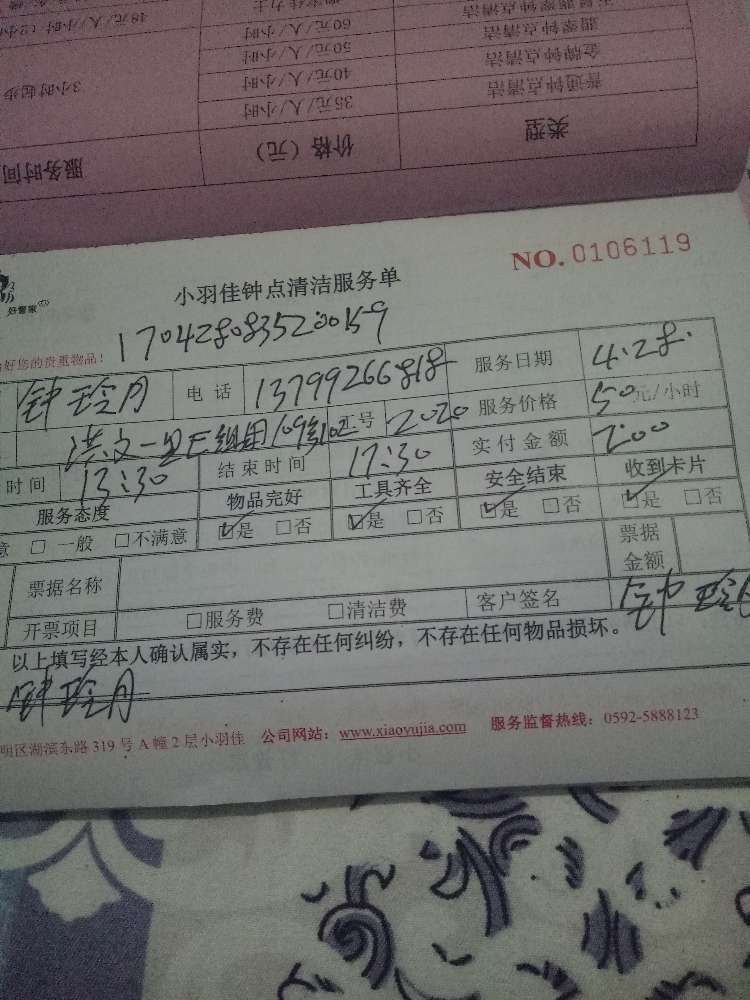 类型 价格（元） 服务时间
普通钟点清洁 35元/人/小时 3小时起步
金牌钟点清洁 40元/人/小时
翡翠钟点清洁 50元/人/小时
60元/人/小时
48元/人/小时
好管家
小羽佳钟点清洁服务单
NO. 0106119
好您的贵重物品！
1704280835200159
钟玲月 电话 13799266818 服务日期 4.28.
洪文一里 工号 2020 服务价格 50元/小时
时间 13:30 结束时间 17:30 实付金额 200
服务态度 物品完好 工具齐全 安全结束 收到卡片
意 □ 一般 □不满意 ☑是 □否 ☑是 □否 ☑是 □否 ☑是 □否
票据名称 票据金额
开票项目 □服务费 □清洁费 客户签名 钟玲月
以上填写经本人确认属实，不存在任何纠纷，不存在任何物品损坏。
钟玲月
明区湖滨东路 319 号 A 幢 2 层小羽佳 公司网站：www.xiaoyujia.com 服务监督热线：0592-5888123